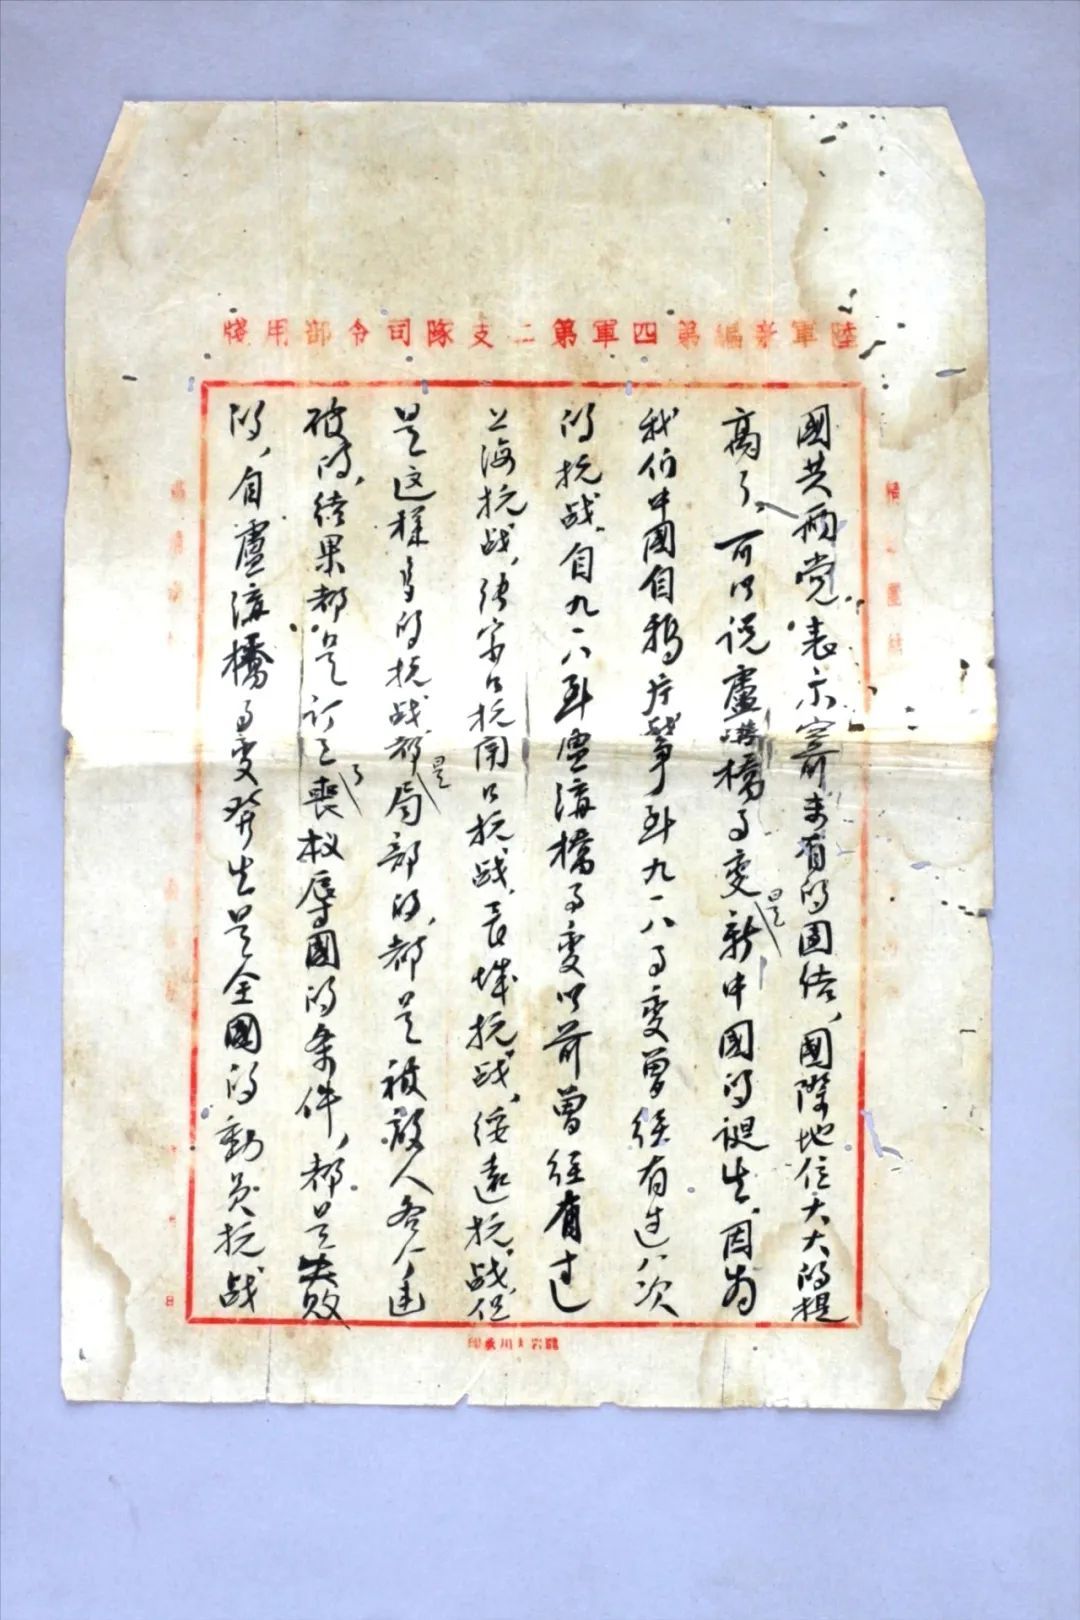 陸軍新編第四軍第二支隊司令部用牋
國共兩党表示空前未有的團结,國際地位大大的提
高了,可以说盧溝橋事变是新中國的诞生,因为
我们中國自鸦片战爭到九一八事变曾经有过八次
的抗战,自九一八到盧溝橋事变以前曾经有过
上海抗战,张家口抗战,長城抗战,绥远抗战,但
是这样多的抗战都是局部的,都是被敌人各个击
破的,结果都是订立了喪权辱國的条件,都是失败
的,自盧溝橋事变発生是全國的動员抗战
日
龍岩大川承印